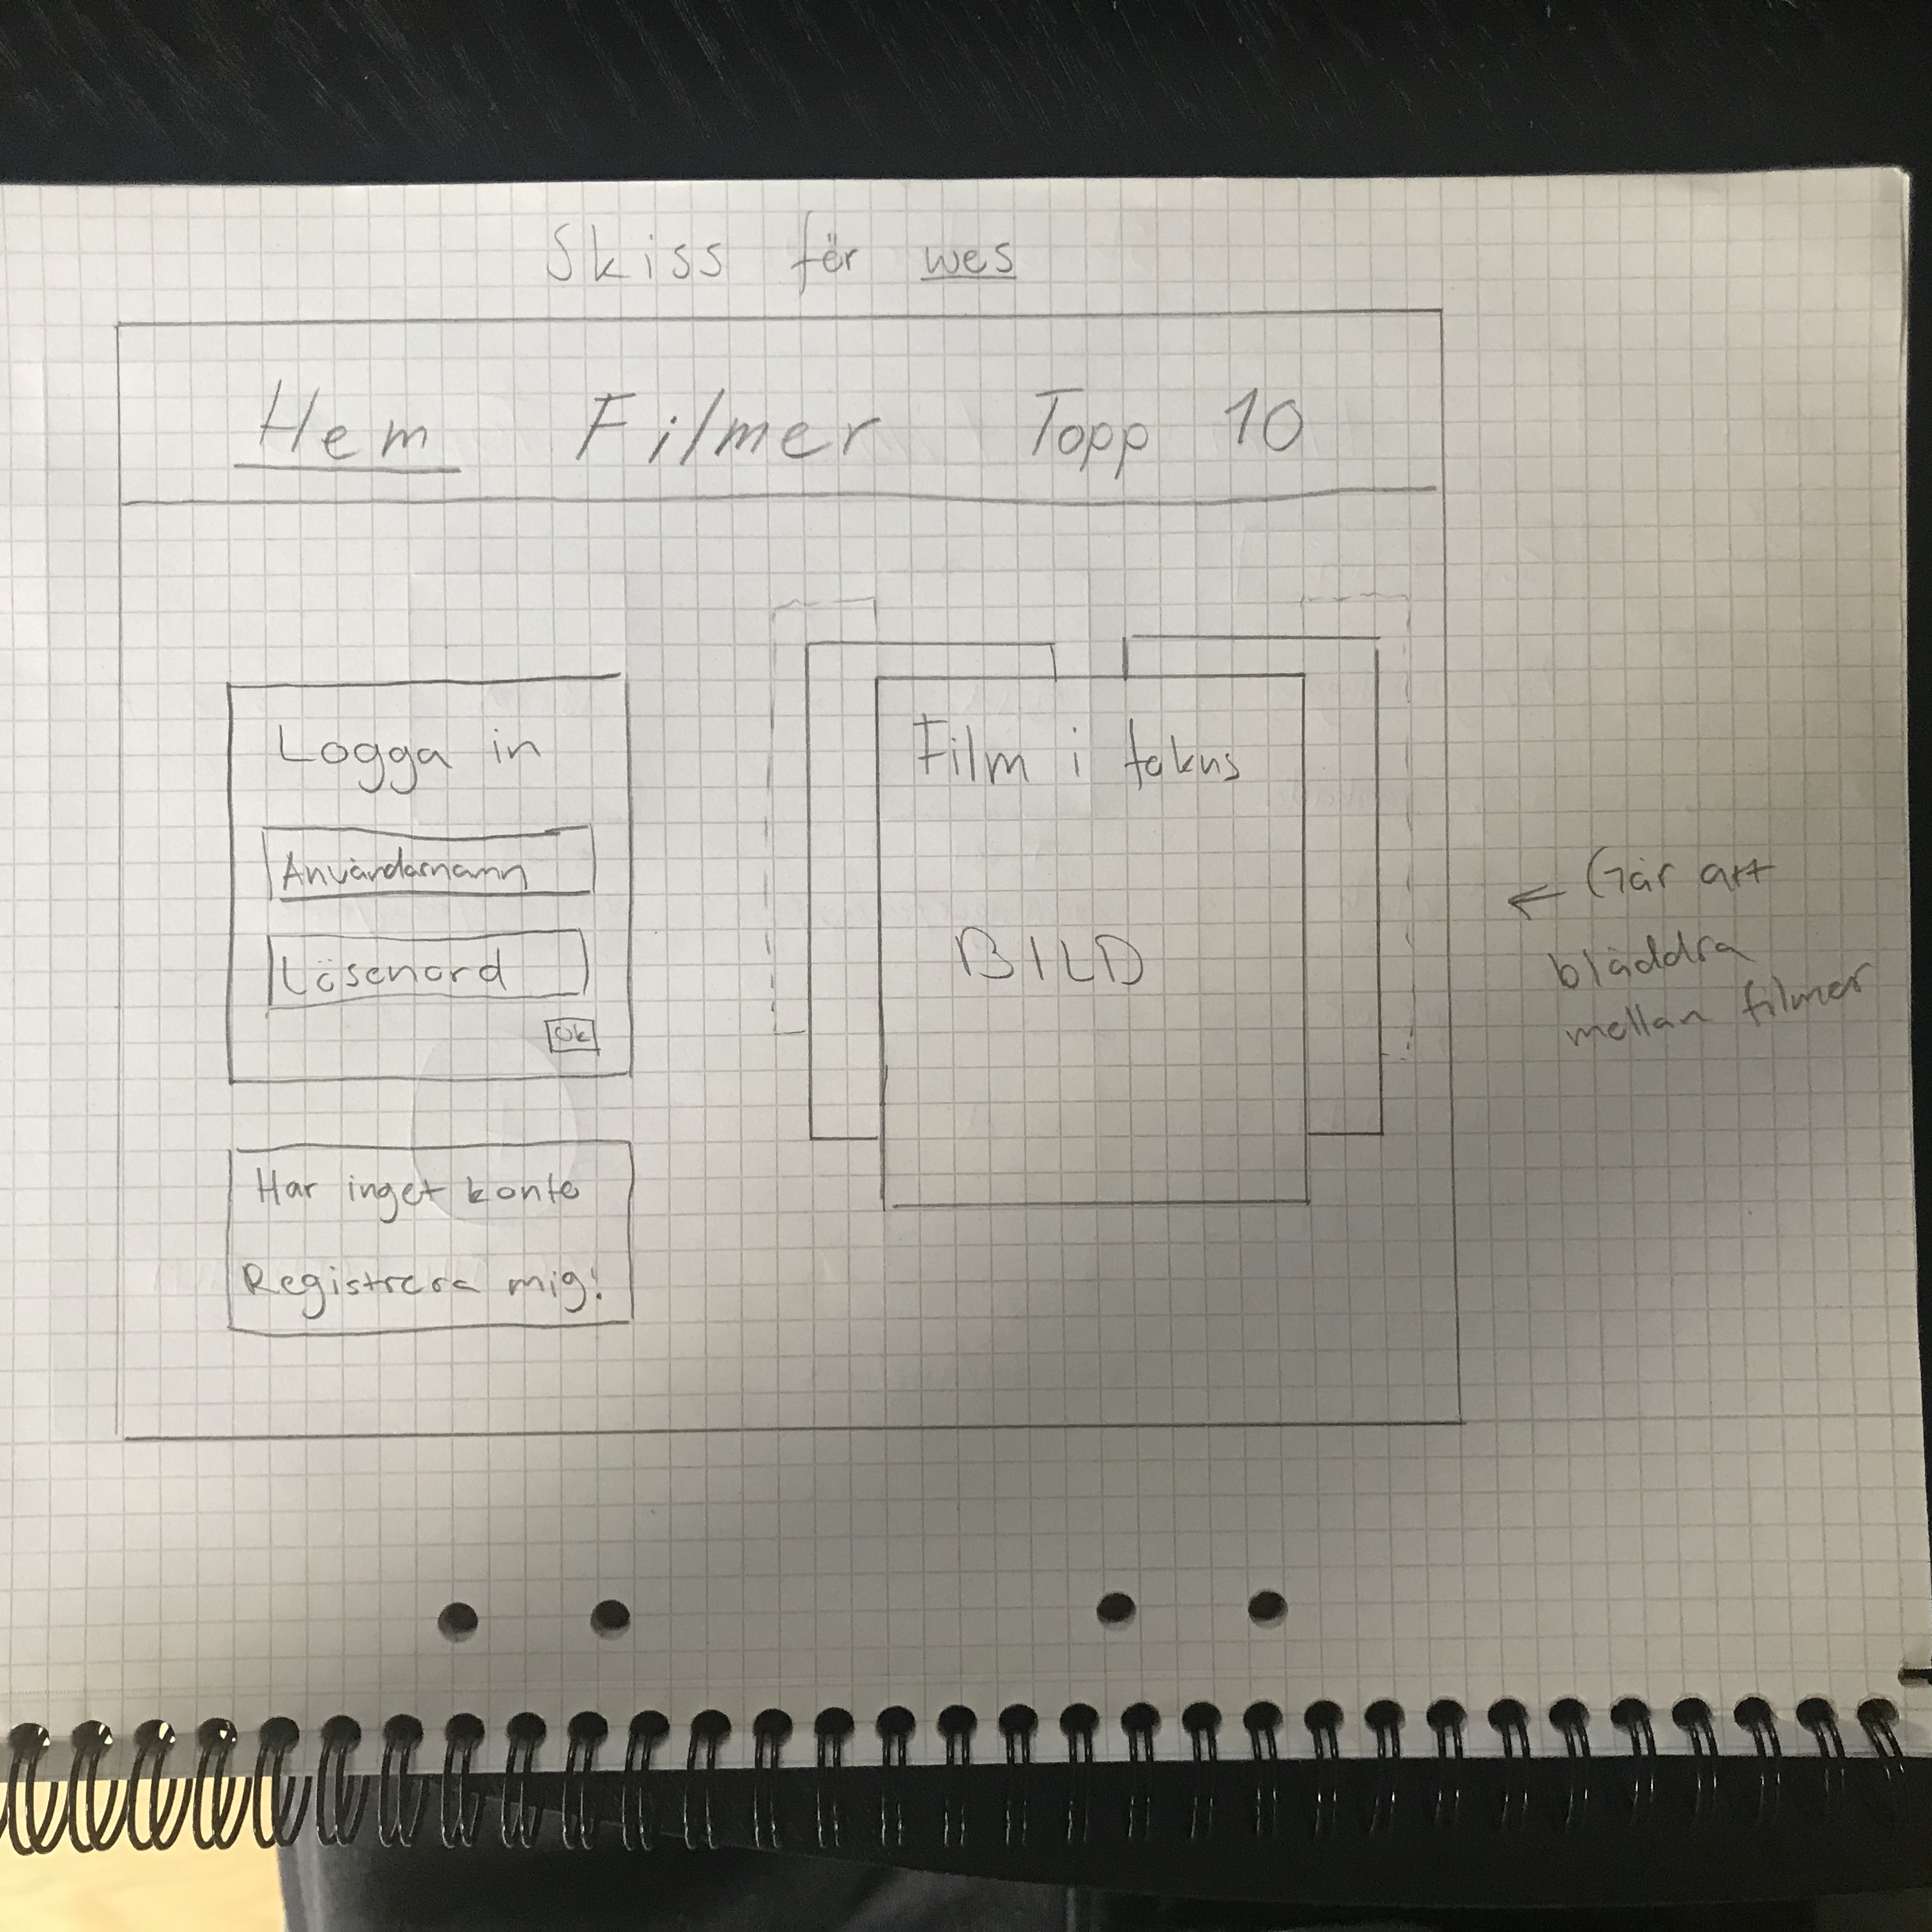 Skiss för wes
Hem Filmer Topp 10
Logga in
Användarnamn
Lösenord
Ok
Har inget konto
Registrera mig!
Film i fokus
BILD
Går att
bläddra
mellan filmer